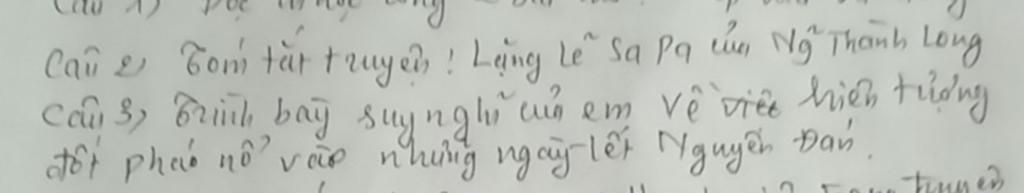 Câu 1) Đọc
Câu 2) Tóm tắt truyện! Lặng lẽ Sa Pa của Ng Thành Long
Câu 3) Trình bày suy nghĩ của em về việc hiện tượng
đốt pháo nổ vào những ngày lết Nguyên Đán.